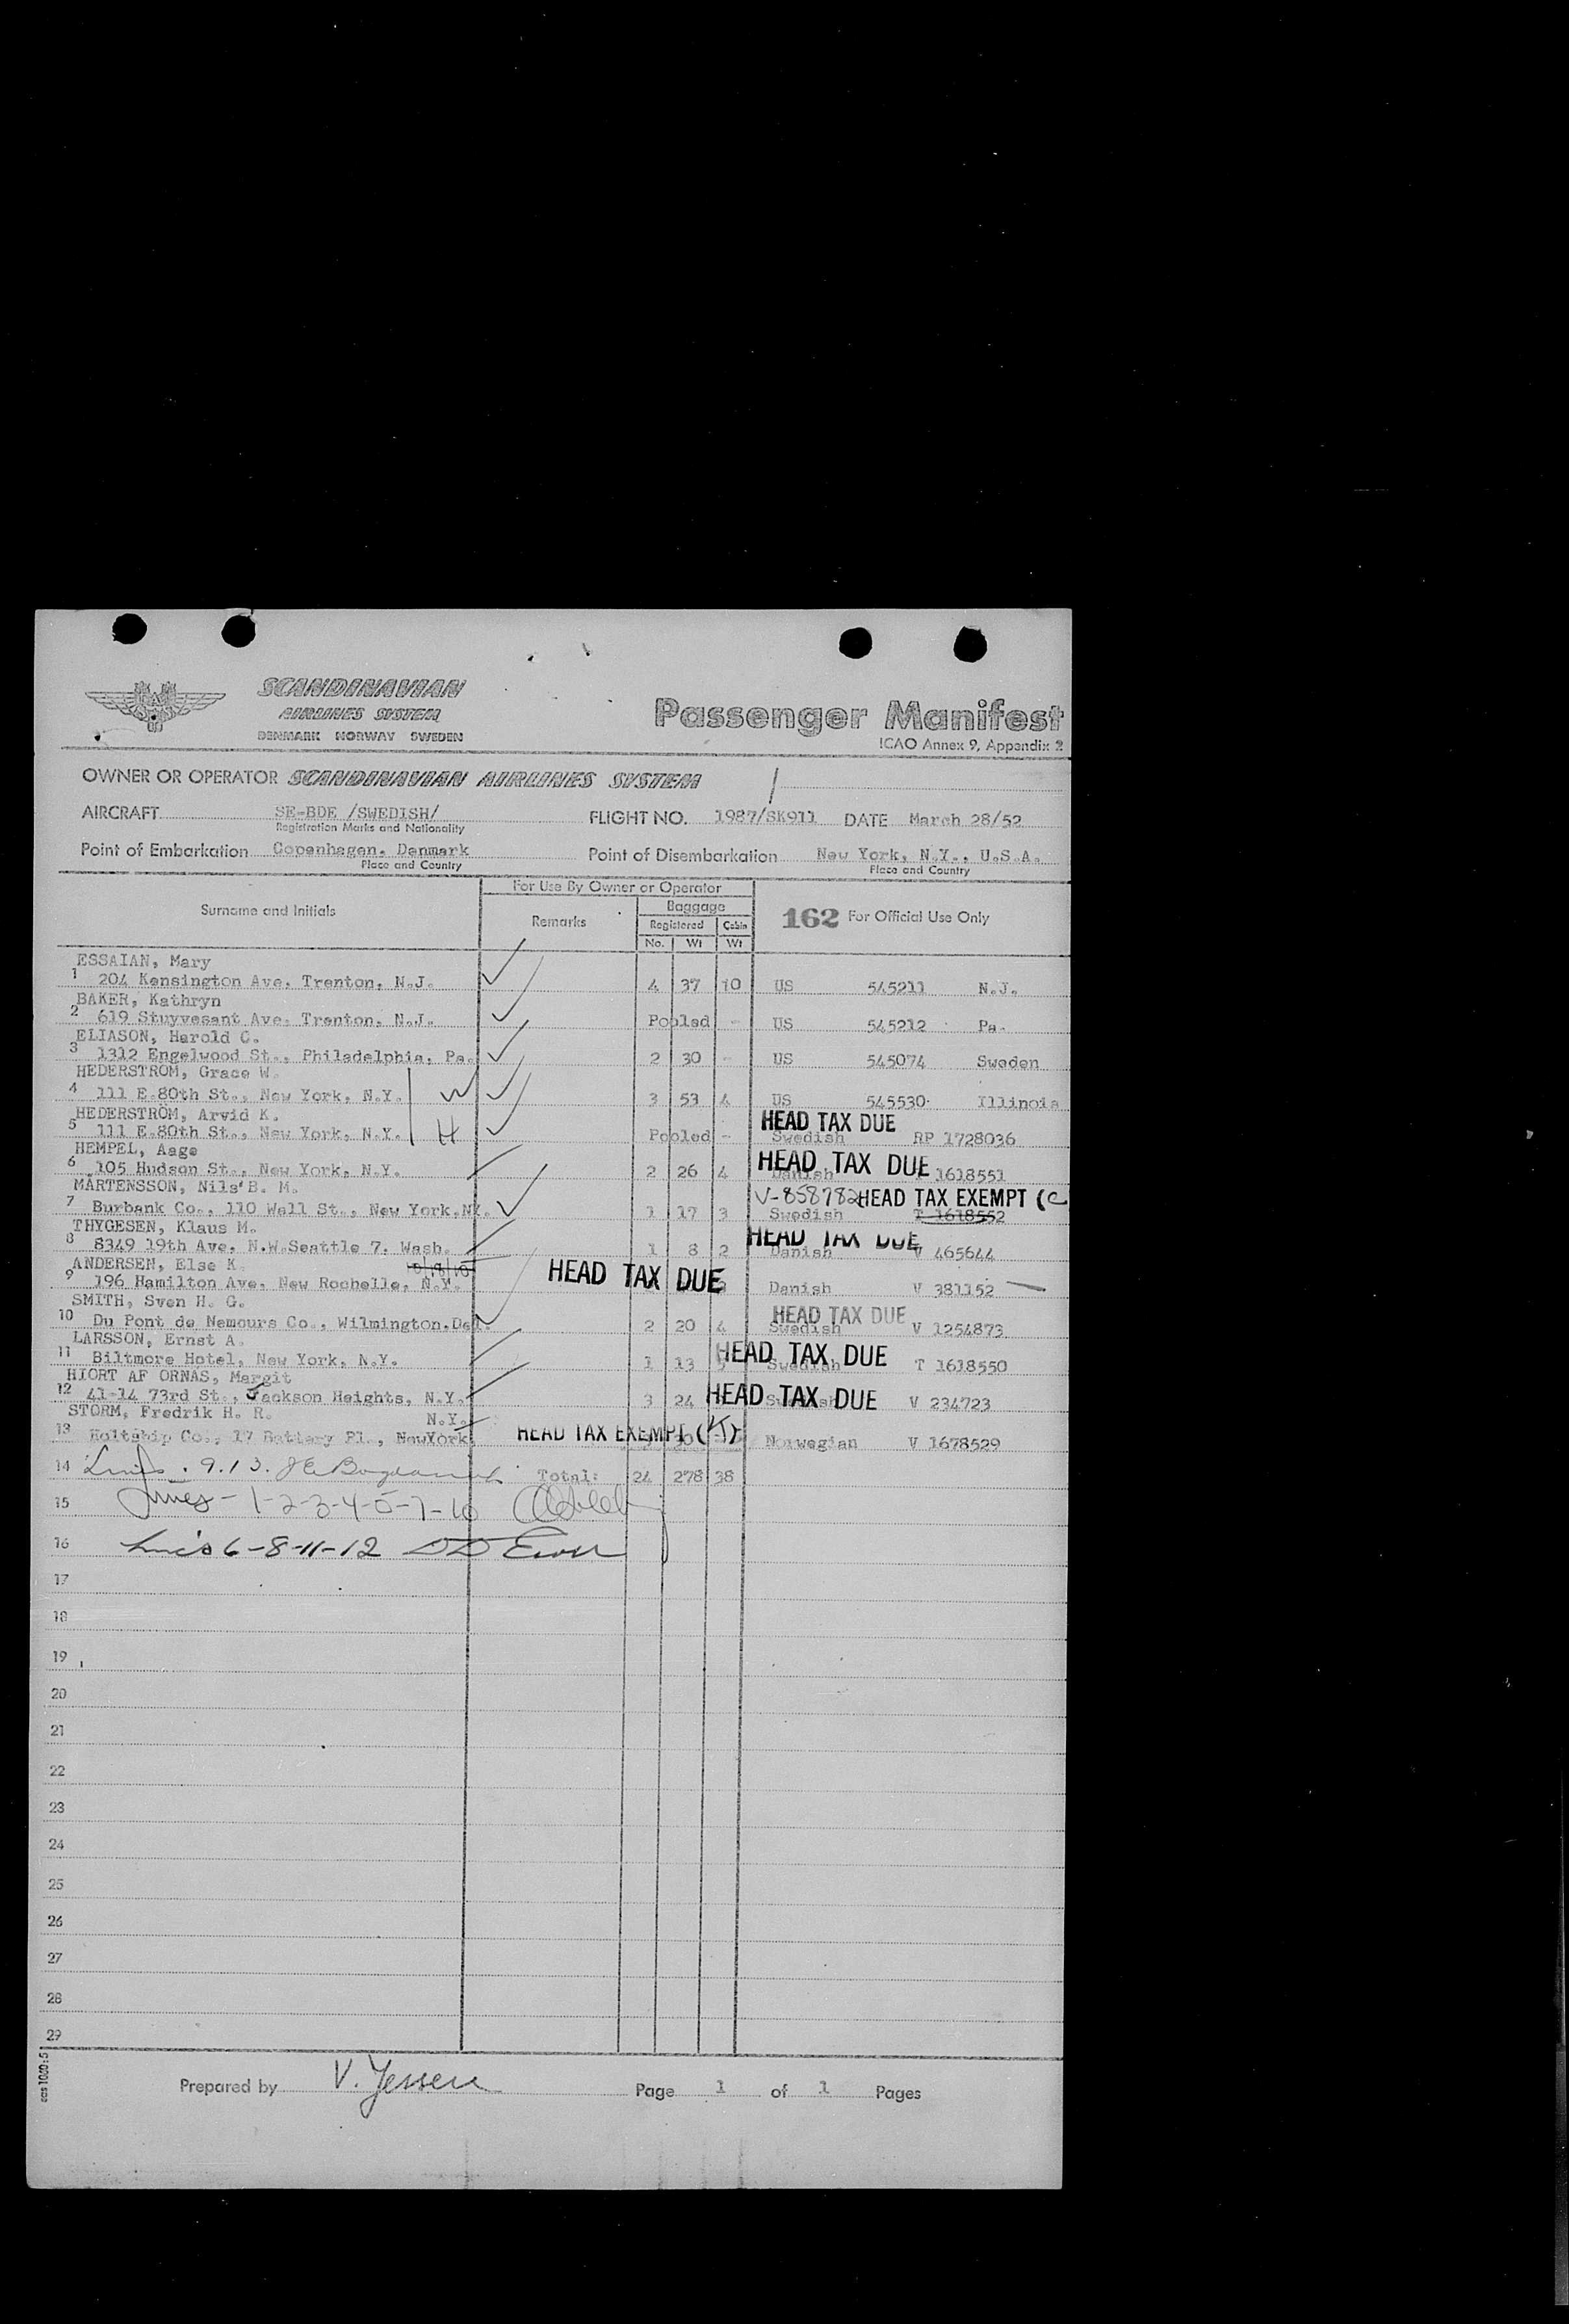 SCANDINAVIAN
AIRLINES SYSTEM
DENMARK NORWAY SWEDEN
Passenger Manifest
ICAO Annex 9, Appendix 2
OWNER OR OPERATOR SCANDINAVIAN AIRLINES SYSTEM
AIRCRAFT SE-BDE /SWEDISH/ FLIGHT NO. 1987/SK911 DATE March 28/52
Registration Marks and Nationality
Point of Embarkation Copenhagen, Denmark Point of Disembarkation New York, N.Y., U.S.A.
Place and Country Place and Country
For Use By Owner or Operator
Surname and Initials Remarks Baggage 162 For Official Use Only
Registered Cabin
No. Wt Wt
ESSAIAN, Mary
1 204 Kensington Ave. Trenton, N.J. 4 37 10 US 545211 N.J.
BAKER, Kathryn
2 619 Stuyvesant Ave. Trenton, N.J. Pooled - US 545212 Pa.
ELIASON, Harold C.
3 1312 Engelwood St., Philadelphia, Pa. 2 30 - US 545074 Sweden
HEDERSTROM, Grace W.
4 111 E.80th St., New York, N.Y. W 3 53 4 US 545530 Illinois
HEDERSTRÖM, Arvid K. HEAD TAX DUE
5 111 E.80th St., New York, N.Y. H Pooled - Swedish RP 1728036
HEMPEL, Aage HEAD TAX DUE
6 105 Hudson St., New York, N.Y. 2 26 4 Danish 1618551
MÅRTENSSON, Nils B. M. V-858782 HEAD TAX EXEMPT (C
7 Burbank Co., 110 Wall St., New York,NY. 1 17 3 Swedish T 1618552
THYGESEN, Klaus M. HEAD TAX DUE
8 8349 19th Ave. N.W.Seattle 7. Wash. 1 8 2 Danish V 465644
ANDERSEN, Else K. HEAD TAX DUE
9 196 Hamilton Ave. New Rochelle, N.Y. Danish V 381152
SMITH, Sven H. G. HEAD TAX DUE
10 Du Pont de Nemours Co., Wilmington.Del. 2 20 4 Swedish V 1254873
LARSSON, Ernst A. HEAD TAX DUE
11 Biltmore Hotel, New York, N.Y. 1 13 Swedish T 1618550
HIORT AF ORNÄS, Margit HEAD TAX DUE
12 41-14 73rd St., Jackson Heights, N.Y. 3 24 Swedish V 234723
STORM, Fredrik H. R. N.Y. HEAD TAX EXEMPT (K)
13 Holtship Co., 17 Battery Pl., NewYork, Norwegian V 1678529
14 Lines. 9.13. Total: 24 278 38
15 Lines-1-2-3-4-5-7-10
16 Lines 6-8-11-12
17
18
19
20
21
22
23
24
25
26
27
28
29
Prepared by V. Jessen Page 1 of 1 Pages